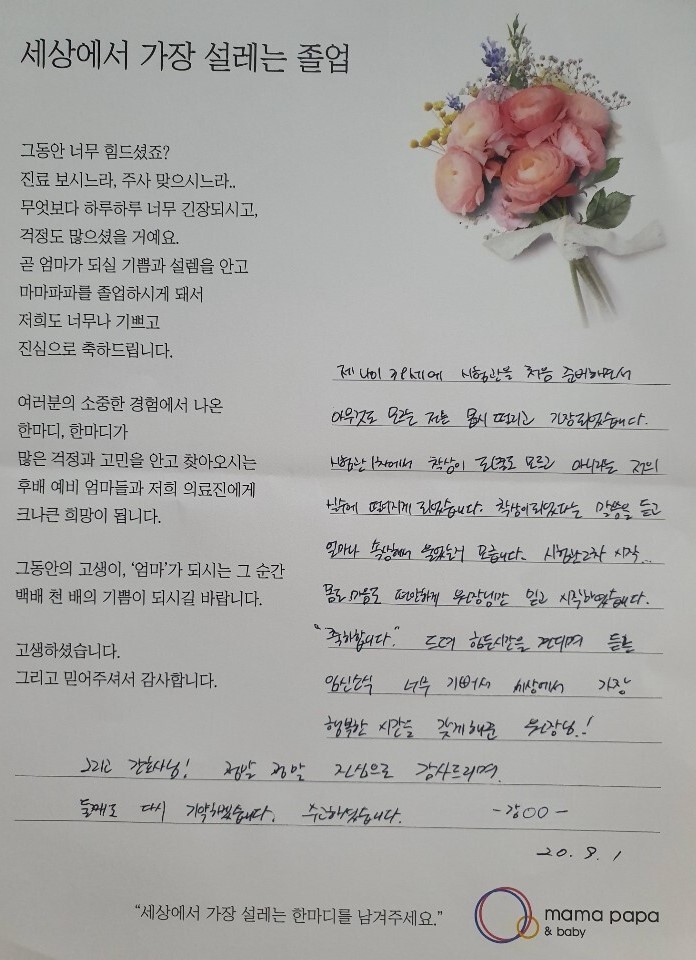 세상에서 가장 설레는 졸업
그동안 너무 힘드셨죠?
진료 보시느라, 주사 맞으시느라..
무엇보다 하루하루 너무 긴장되시고,
걱정도 많으셨을 거예요.
곧 엄마가 되실 기쁨과 설렘을 안고
마마파파를 졸업하시게 돼서
저희도 너무나 기쁘고
진심으로 축하드립니다.
여러분의 소중한 경험에서 나온
한마디, 한마디가
많은 걱정과 고민을 안고 찾아오시는
후배 예비 엄마들과 저희 의료진에게
크나큰 희망이 됩니다.
그동안의 고생이, '엄마'가 되시는 그 순간
백배 천 배의 기쁨이 되시길 바랍니다.
고생하셨습니다.
그리고 믿어주셔서 감사합니다.
제 나이 38세에 시험관을 처음 준비하면서
아무것도 모르는 저는 몹시 떨리고 긴장되었습니다.
시험관 1차에서 착상이 된줄도 모르고 아니라는 저의
실수에 떨어지게 되었습니다. 착상이 되었다는 말씀을 듣고
얼마나 속상해서 울었는지 모릅니다. 시험관 2차 시작...
몸도 마음도 편안하게 부원장님만 믿고 시작하였습니다.
"축하합니다." 드뎌 힘든시간을 견디며 듣는
임신소식 너무 기뻐서 세상에서 가장
행복한 시간을 갖게해준 부원장님.!
그리고 간호사님! 정말 정말 진심으로 감사드리며.
둘째도 다시 기약하겠습니다. 수고하셨습니다. -강OO-
20. 9. 1
"세상에서 가장 설레는 한마디를 남겨주세요."
mama papa
& baby